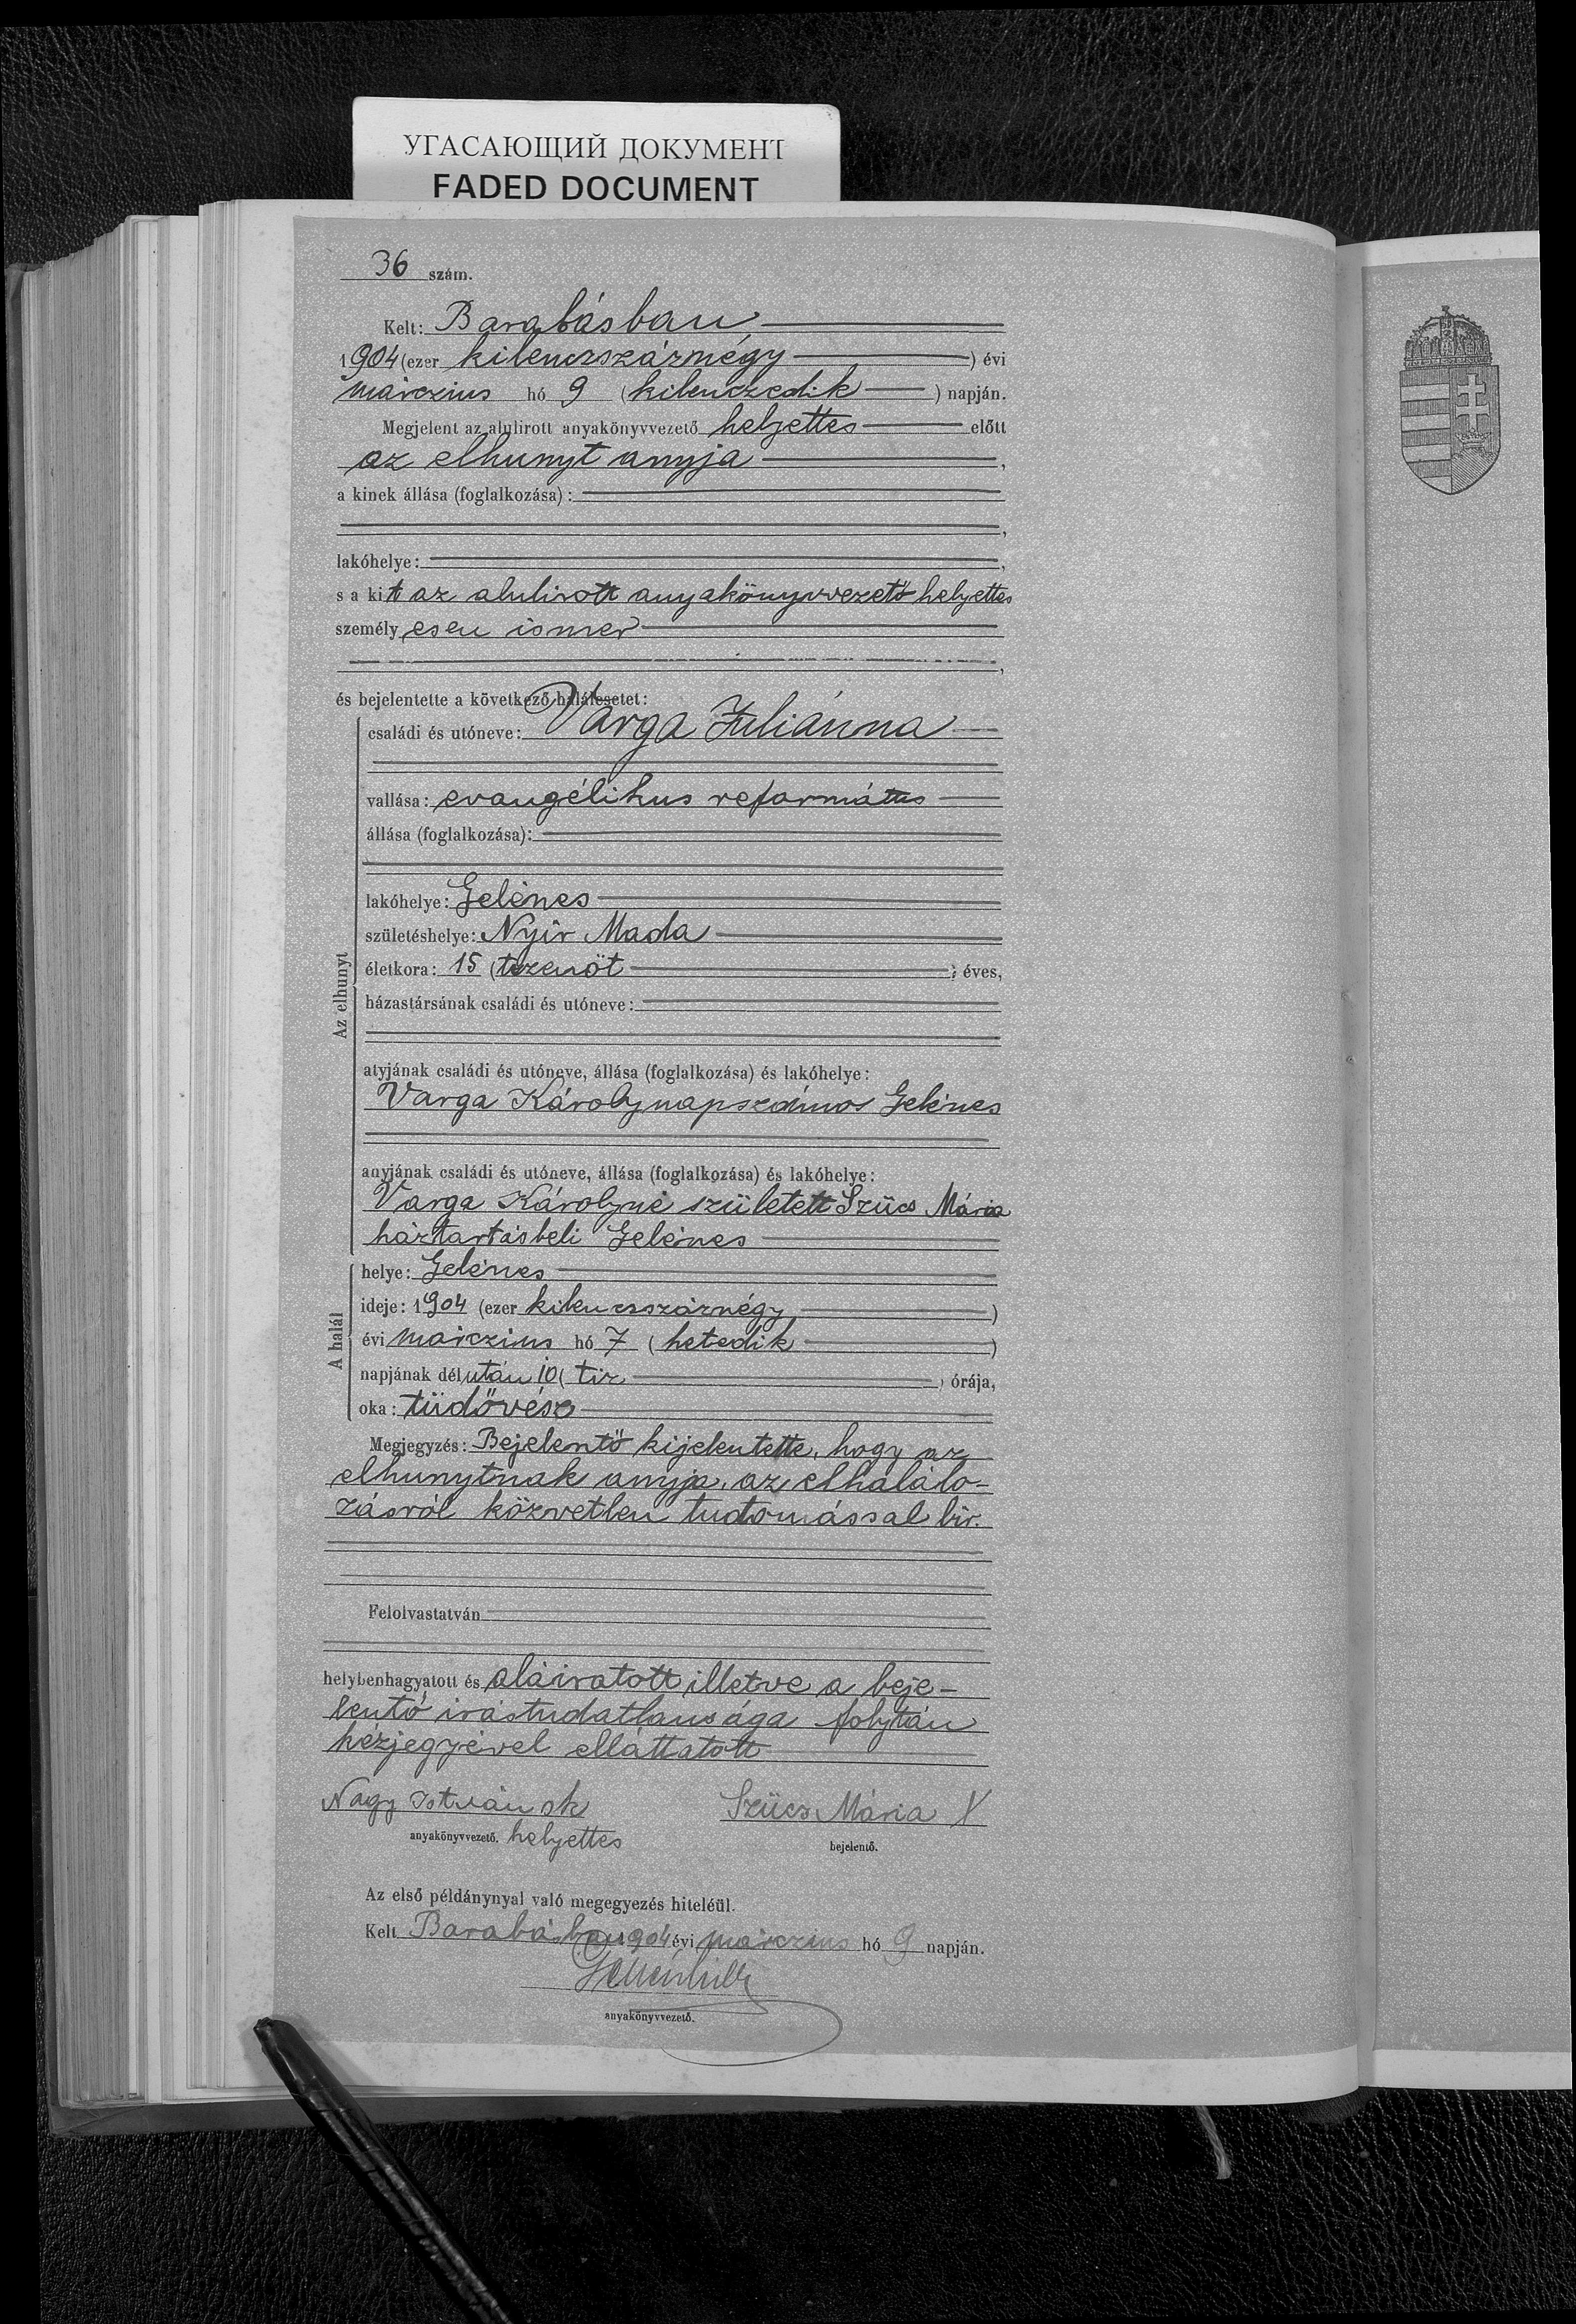 УГАСАЮЩИЙ ДОКУМЕНТ
FADED DOCUMENT
36 szám.
Kelt: Barabásban
1904 (ezer kilencszáznégy) évi
márczius hó 9 (kilenczedik) napján.
Megjelent az alulirott anyakönyvvezető helyettes előtt
az elhunyt anyja,
a kinek állása (foglalkozása):
,
lakóhelye:,
s a kit az alulirott anyakönyvvezető helyettes
személyesen ismer
,
és bejelentette a következő halálesetet:
családi és utóneve: Varga Juliánna
vallása: evangélikus református
állása (foglalkozása):
lakóhelye: Gelénes
születéshelye: Nyir Mada
életkora: 15 (tizenöt) éves,
házastársának családi és utóneve:
Az elhunyt
atyjának családi és utóneve, állása (foglalkozása) és lakóhelye:
Varga Károly napszámos Gelénes
anyjának családi és utóneve, állása (foglalkozása) és lakóhelye:
Varga Károlyné született Szücs Mária
háztartásbeli Gelénes
A halál
helye: Gelénes
ideje: 1904 (ezer kilencszáznégy)
évi márczius hó 7 (hetedik)
napjának délután 10 (tiz) órája,
oka: tüdővész
Megjegyzés: Bejelentő kijelentette, hogy az
elhunytnak anyja, az elhalálo-
zásról közvetlen tudomással bir.
Felolvastatván
helybenhagyatott és aláiratott illetve a beje-
lentő irástudatlansága folytán
kézjegyével elláttatott
Nagy István sk Szücs Mária X
anyakönyvvezető. helyettes bejelentő.
Az első példánynyal való megegyezés hiteléül.
Kelt Barabásban 1904 évi márczius hó 9 napján.
anyakönyvvezető.